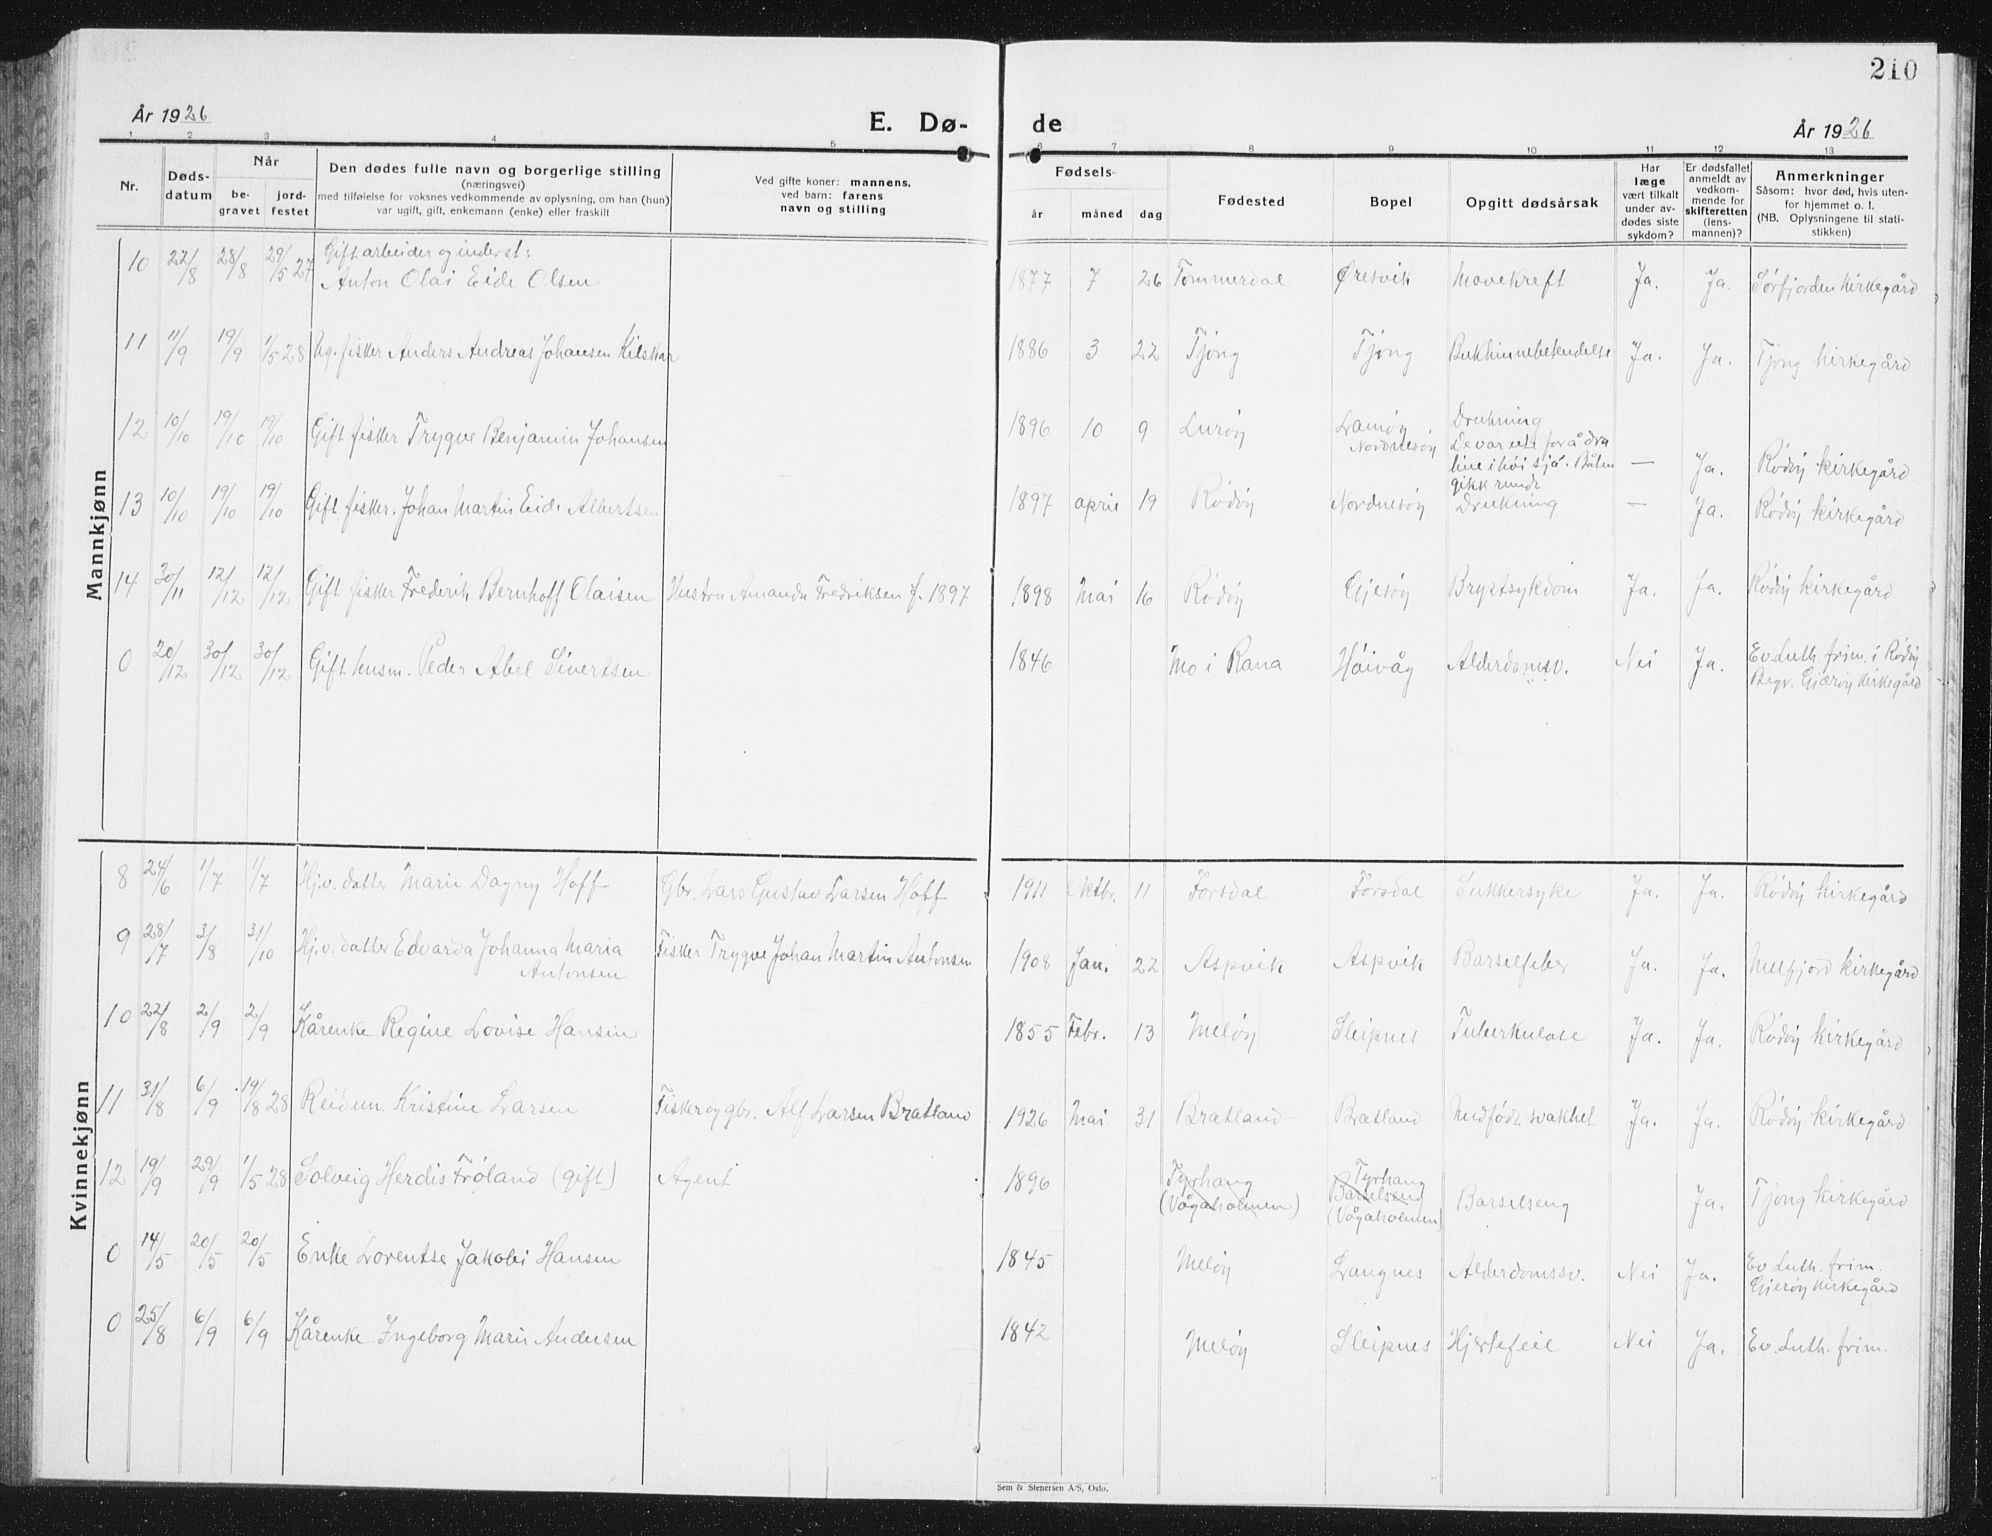 210
År 1926
E. Dø-
de
År 1926
1 2 3 4 5 6 7 8 9 10 11 12 13
Nr.
Døds-
datum
Når
be-
gravet
jord-
festet
Den dødes fulle navn og borgerlige stilling
(næringsvei)
med tilføielse for voksnes vedkommende av oplysning, om han (hun)
var ugift, gift, enkemann (enke) eller fraskilt
Ved gifte koner: mannens,
ved barn: farens
navn og stilling
Fødsels-
år
måned
dag
Fødested
Bopel
Opgitt dødsårsak
Har
læge
vært tilkalt
under av-
dødes siste
sykdom?
Er dødsfallet
anmeldt av
vedkom-
mende for
skifteretten
(lens-
mannen)?
Anmerkninger
Såsom: hvor død, hvis uten-
for hjemmet o. l.
(NB. Oplysningene til stati-
stikken)
Mannkjønn
10 22/8 28/8 29/5 27 Gift arbeider og inderst:
Anton Olai Eide Olsen 1877 7 26 Tommerdal Øresvik Mavekreft Ja. Ja. Sørfjorden kirkegård
11 11/9 19/9 1/5 28 Ug. fisker Anders Andreas Johansen Kilskar 1886 3 22 Tjong Tjong Bukhinnebetendelse Ja. Ja. Tjong kirkegård
12 10/10 19/10 19/10 Gift fisker Trygve Benjamin Johansen 1896 10 9 Lurøy Nordnesøy Drukning
De var ute for å dra
line i høi sjø. Båten
gikk rundt — Ja. Rødøy kirkegård
13 10/10 19/10 19/10 Gift fisker. Johan Martin Eide Albertsen 1897 april 19 Rødøy Nordnesøy Drukning — Ja. Rødøy kirkegård
14 30/11 12/12 12/12 Gift fisker Frederik Bernhoff Olaisen Hustru Amanda Fredriksen f. 1897 1898 Mai 16 Rødøy Gjesøy Brystsykdom Ja. Ja. Rødøy kirkegård
0 20/12 30/12 30/12 Gift husm. Peder Abel Sivertsen 1846 Mo i Rana Høivåg Alderdomsv. Nei Ja. Ev. Luth. frim. i Rødøy
Begr. Gjærøy kirkegård
Kvinnekjønn
8 24/6 1/7 1/7 Hj.v. datter Marie Dagny Hoff Gbr. Lars Gustav Larsen Hoff 1911 Oktbr. 11 Forsdal Forsdal Sukkersyke Ja. Ja. Rødøy kirkegård
9 28/7 3/8 31/10 Hj.v. datter Edvarda Johanna Maria
Antonsen Fisker Trygve Johan Martin Antonsen 1908 Jan. 22 Aspvik Aspvik Barselfeber Ja. Ja. Melfjord kirkegård
10 22/8 2/9 2/9 Kårenke Regine Lovise Hansen 1855 Febr. 13 Meløy Sleipnes Tuberkulose Ja. Ja. Rødøy kirkegård
11 31/8 6/9 19/8 28 Reidun Kristine Larsen Fisker og gbr. Alf Larsen Bratland 1926 Mai 31 Bratland Bratland Medfødt svakhet Ja. Ja. Rødøy kirkegård
12 19/9 29/9 1/5 28 Solveig Herdis Frøland (gift) Agent 1896 Tyrhaug
(Vågaholmen) Tyrhaug
Barselseng
(Vågaholmen) Barselseng Ja. Tjong kirkegård
0 14/5 20/5 20/5 Enke Lorentse Jakobi Hansen 1845 Meløy Langnes Alderdomssv. Nei Ja. Ev. Luth. frim.
Gjerøy kirkegård
0 25/8 6/9 6/9 Kårenke Ingeborg Marie Andersen 1842 Meløy Sleipnes Hjertefeil Nei Ja. Ev. Luth. frim.
Sem & Stenersen A/S, Oslo.